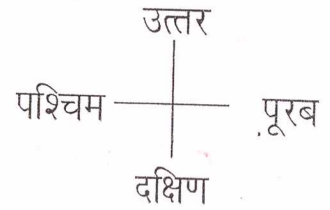 उत्तर
पश्चिम पूरब
दक्षिण